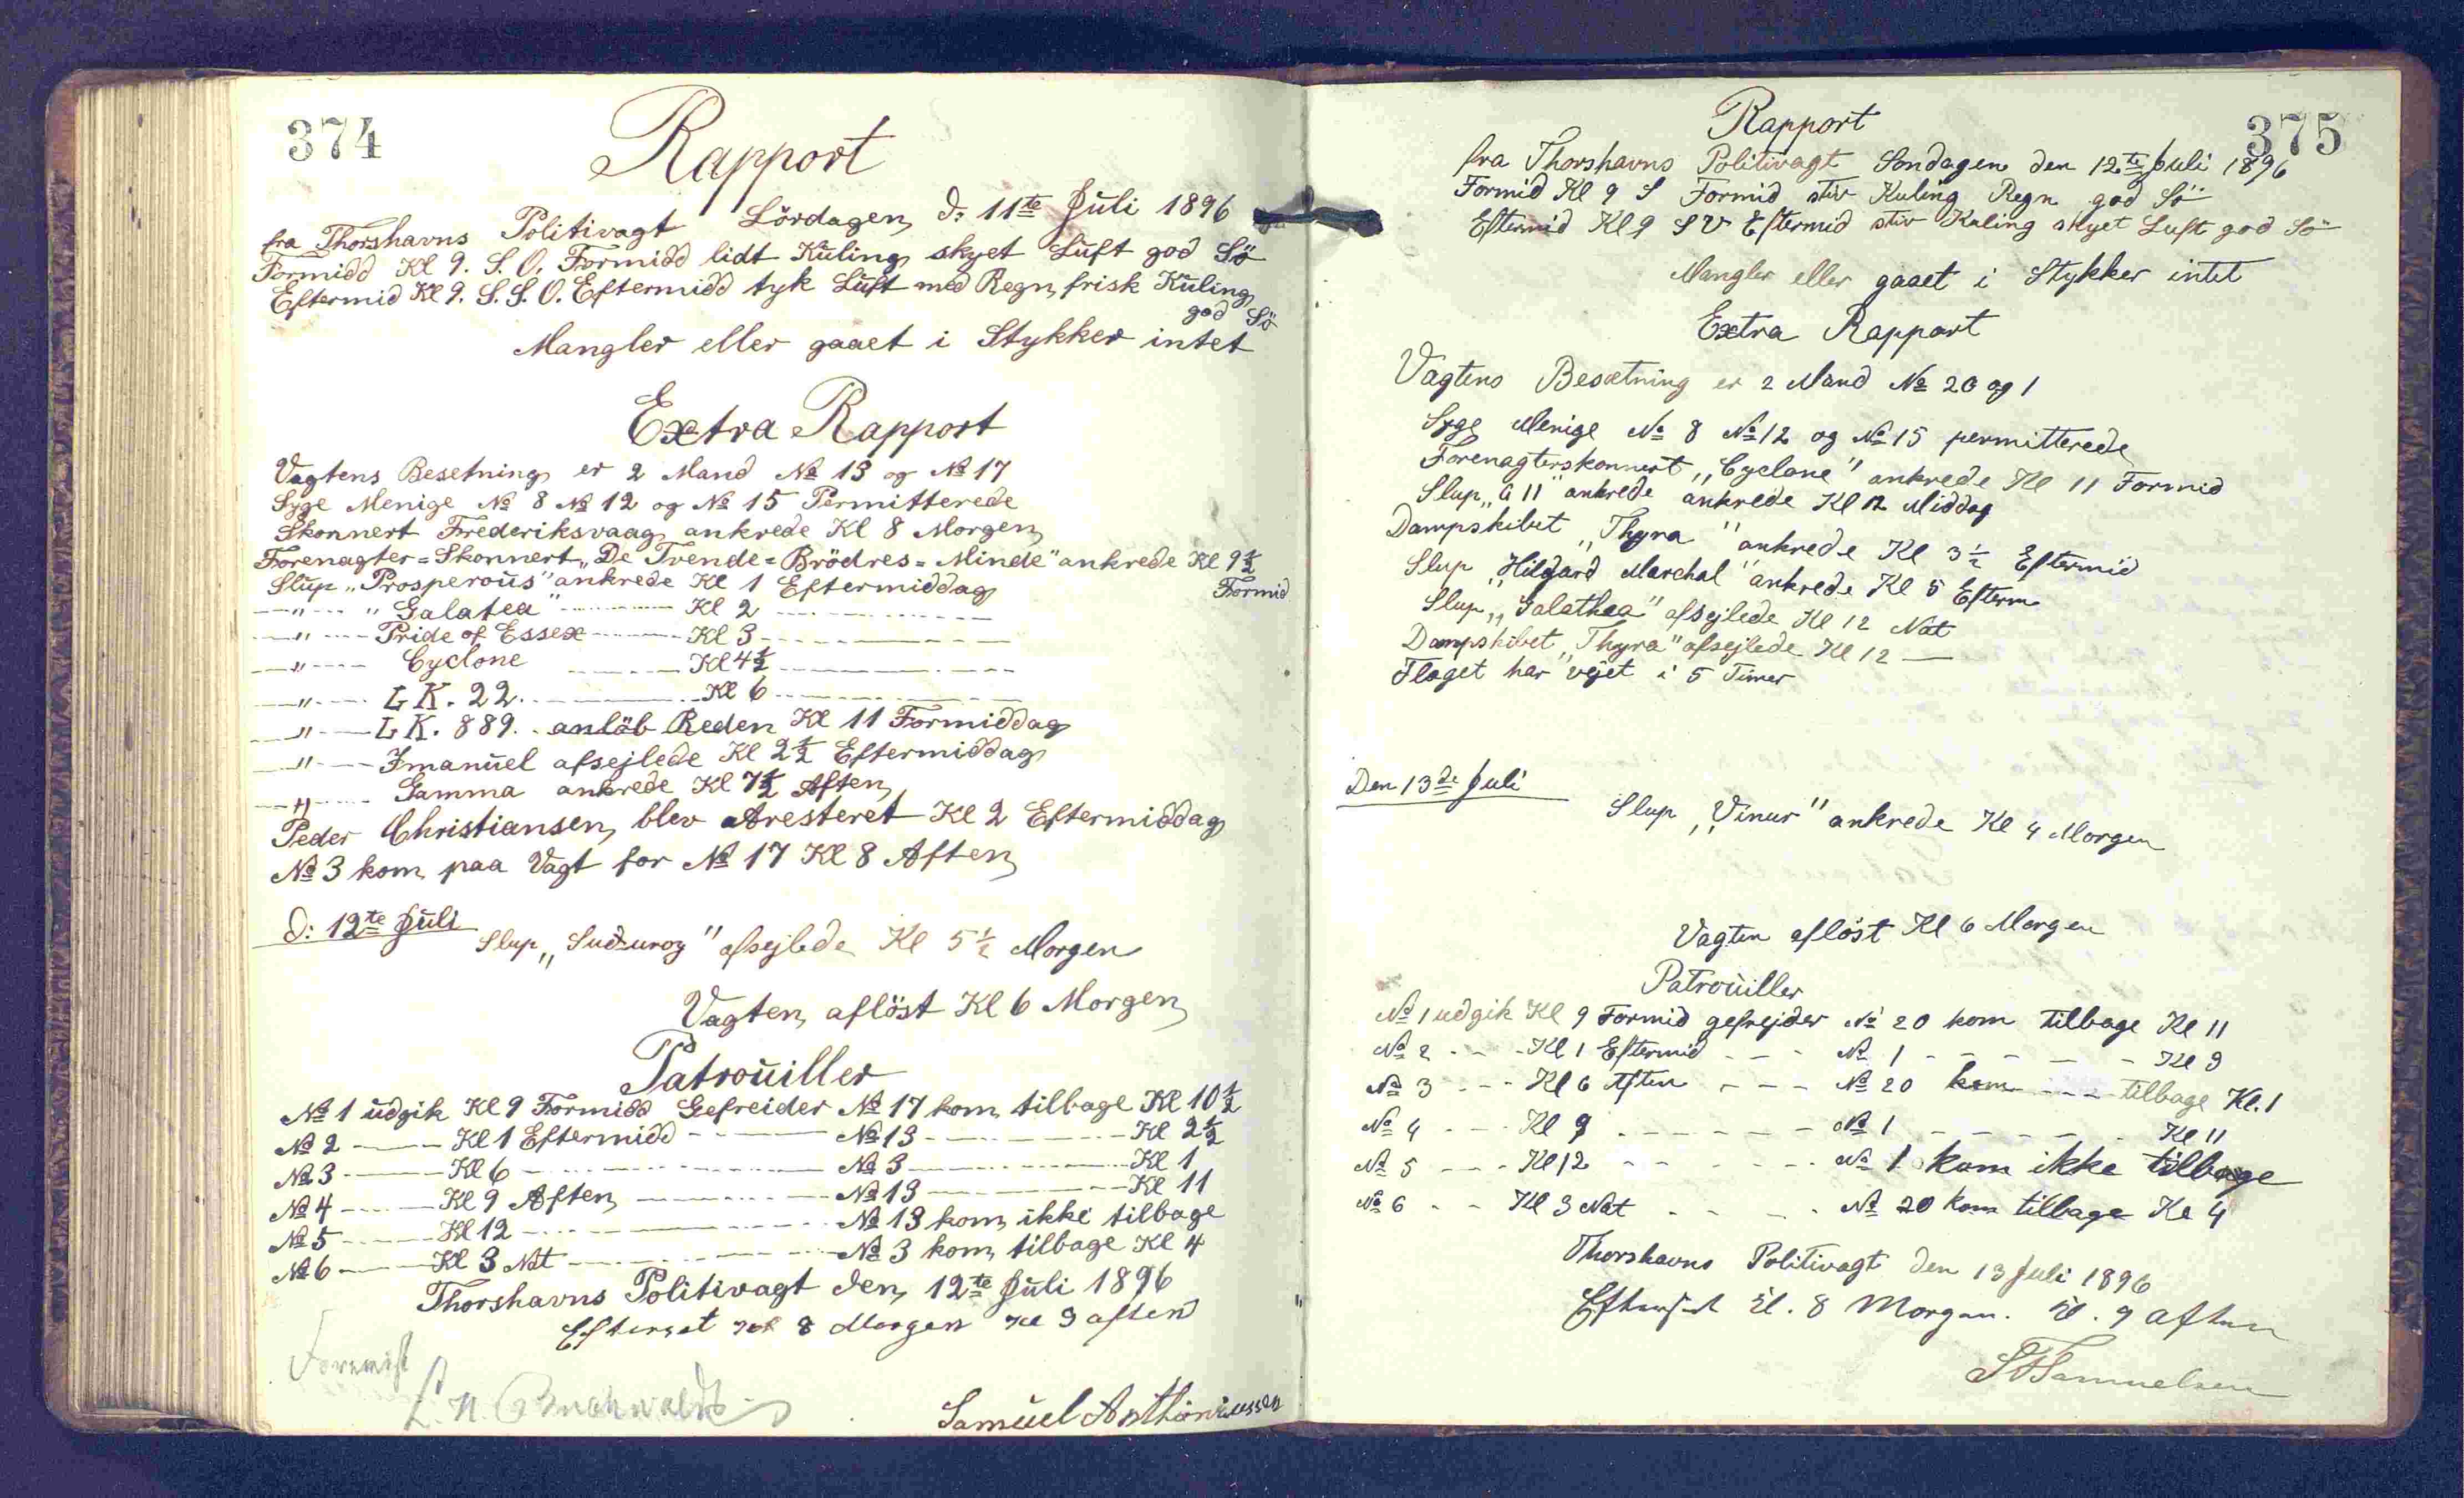 374
Rapport
fra Thorshavns Politivagt Lördagen d: 11te Juli 1896
Formidd Kl 9. S. O. Formidd lidt Kuling skyet Luft god Sö
Eftermid Kl 9. S. S. O. Eftermidd tyk Luft med Regn frisk Kuling
god Sö
Mangler eller gaaet i Stykker intet
Extra Rapport
Vagtens Besetning er 2 Mand No 13 og No 17
Syge Menige No 8 No 12 og No 15 Permitterede
Skonnert Frederiksvaag ankrede Kl 8 Morgen
Forenagter=Skonnert „De Tvende=Brödres=Minde" ankrede Kl 9½
Formid
Slup „Prosperous" ankrede Kl 1 Eftermiddag
—"— "Galatea" —— Kl 2 ——
—"— Pride of Essex —— Kl 3 ——
—"— Cyclone —— Kl 4½ ——
—"— L K. 22. —— Kl 6 ——
—"— L K. 889. anlöb Reden Kl 11 Formiddag
—"— Imanuel afsejlede Kl 2½ Eftermiddag
—"— Gamma ankrede Kl 7½ Aften
Peder Christiansen blev Aresteret Kl 2 Eftermiddag
No 3 kom paa Vagt for No 17 Kl 8 Aften
d: 12te Juli
Slup „Suduroy" afsejlede Kl 5½ Morgen
Vagten aflöst Kl 6 Morgen
Patrouiller
No 1 udgik Kl 9 Formidd Gefreider No 17 kom tilbage Kl 10½
No 2 —— Kl 1 Eftermidd —— No 13 —— Kl 2½
No 3 —— Kl 6 —— No 3 —— Kl 1
No 4 —— Kl 9 Aften —— No 13 —— Kl 11
No 5 —— Kl 12 —— No 13 kom ikke tilbage
No 6 —— Kl 3 Nat —— No 3 kom tilbage Kl 4
Thorshavns Politivagt den 12te Juli 1896
Efterset Kl 8 Morgen Kl 9 aften
Samuel Anthoniussen
375
Rapport
fra Thorshavns Politivagt Söndagen den 12te Juli 1896
Formid Kl 9 S Formid stiv Kuling Regn god Sö
Eftermid Kl 9 S V Eftermid stiv Kuling skyet Luft god Sö
Mangler eller gaaet i Stykker intet
Extra Rapport
Vagtens Besætning er 2 Mand No 20 og 1
Syge Menige No 8 No 12 og No 15 permitterede
Forenagterskonnert „Cyclone" ankrede Kl 11 Formid
Slup „G 11" ankrede ankrede Kl 12 Middag
Dampskibet „Thyra" ankrede Kl 3½ Eftermid
Slup „Hildgard Marchal" ankrede Kl 5 Efterm
Slup „Galathea" afsejlede Kl 12 Nat
Dampskibet „Thyra" afsejlede Kl 12 —
Flaget har vejet i 5 Timer
Den 13de Juli
Slup „Vinur" ankrede Kl 4 Morgen
Vagten aflöst Kl 6 Morgen
Patrouiller
No 1 udgik Kl 9 Formid gefrejder No 20 kom tilbage Kl 11
No 2 - - - Kl 1 Eftermid - - - No 1 - - - - - Kl 3
No 3 - - - Kl 6 Aften - - - No 20 kom - - - tilbage Kl. 1
No 4 - - - Kl 9 - - - - - - No 1 - - - - - Kl 11
No 5 - - - Kl 12 - - - - - No 1 kom ikke tilbage
No 6 - - Kl 3 Nat - - - - No 20 kom tilbage Kl 4
Thorshavns Politivagt den 13 Juli 1896
Efterset Kl. 8 Morgen. Kl. 9 aften
Samuelsen